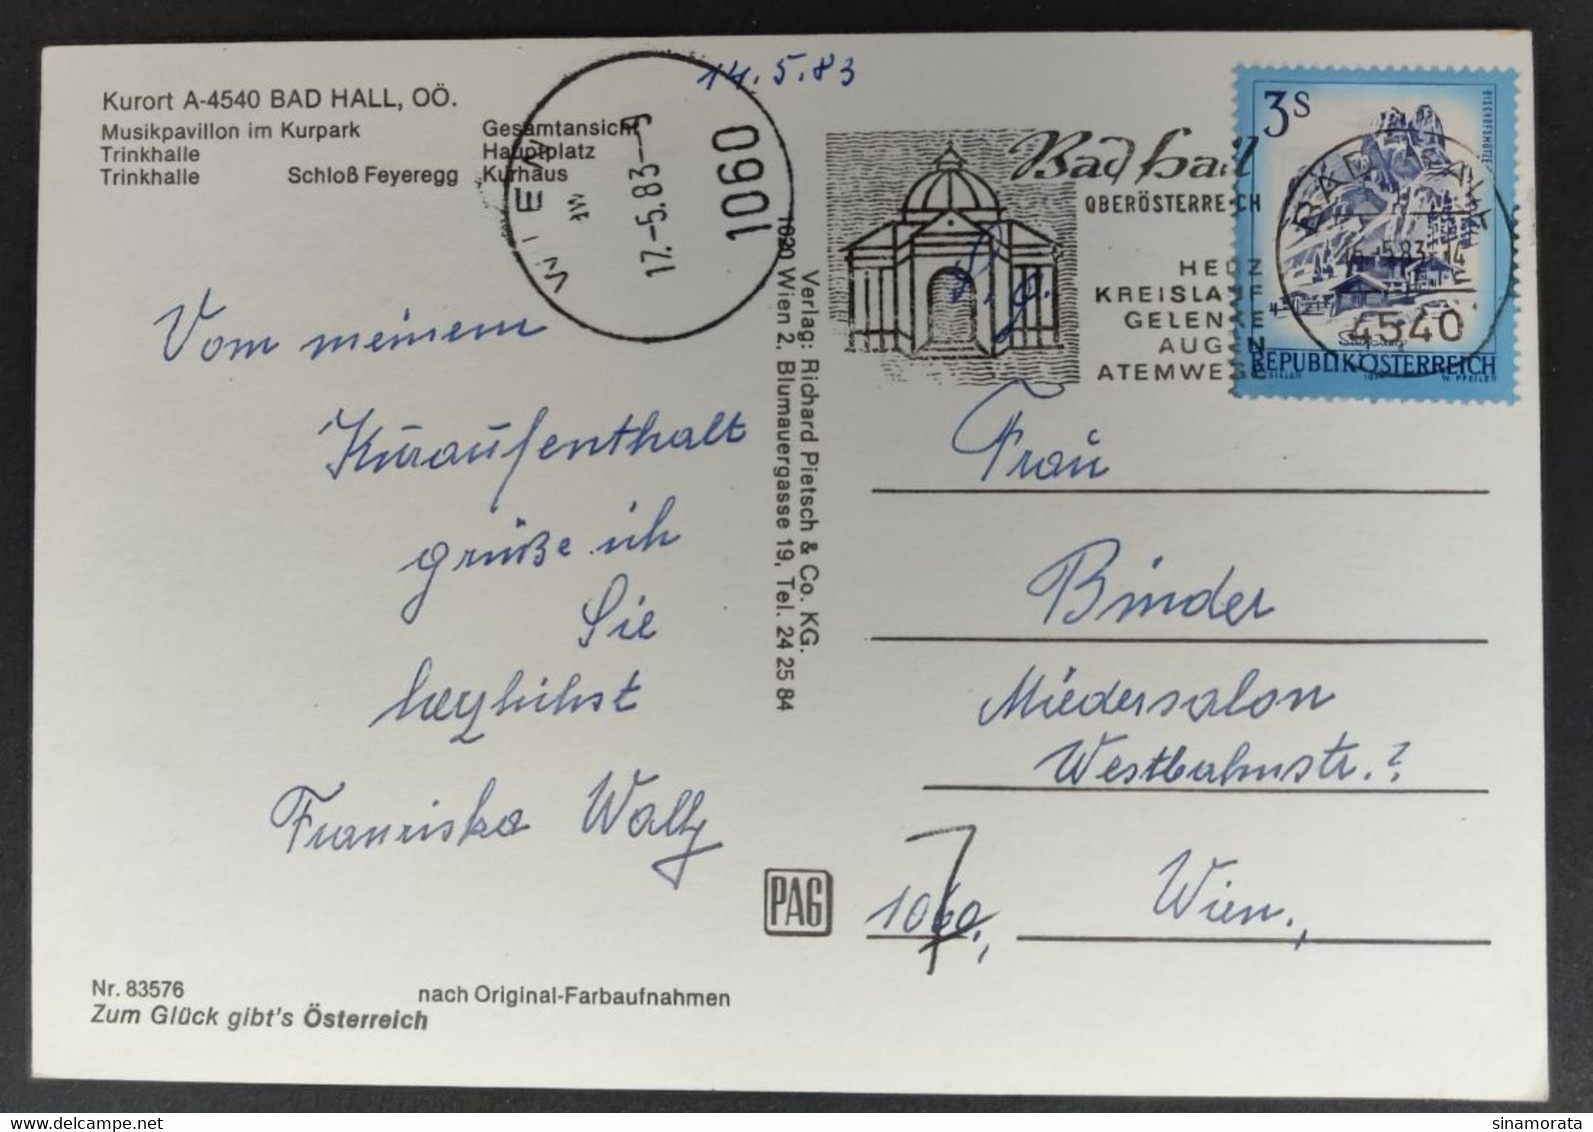 Kurort A-4540 BAD HALL, OÖ.
Musikpavillon im Kurpark
Gesamtansicht
Trinkhalle
Hauptplatz
Trinkhalle
Schloß Feyeregg
Kurhaus
14.5.83
WIEN
17.-5.83--9
1060
Bad Hall
OBERÖSTERREICH
HERZ
KREISLAUF
GELENKE
AUGEN
ATEMWEGE
3S
BISCHOFSMÜTZE
BAD HALL
16.-5.83-14
4540
Salzburg
REPUBLIK ÖSTERREICH
W. PFEILER
Vom meinem
Kuraufenthalt
grüße ich
Sie
herzlichst
Franziska Wally
Verlag: Richard Pietsch & Co. KG.
1020 Wien 2, Blumauergasse 19, Tel. 24 25 84
Frau
Binder
Miedersalon
Westbahnstr.?
1060, Wien.,
7
PAG
Nr. 83576
nach Original-Farbaufnahmen
Zum Glück gibt's Österreich
sinamorata